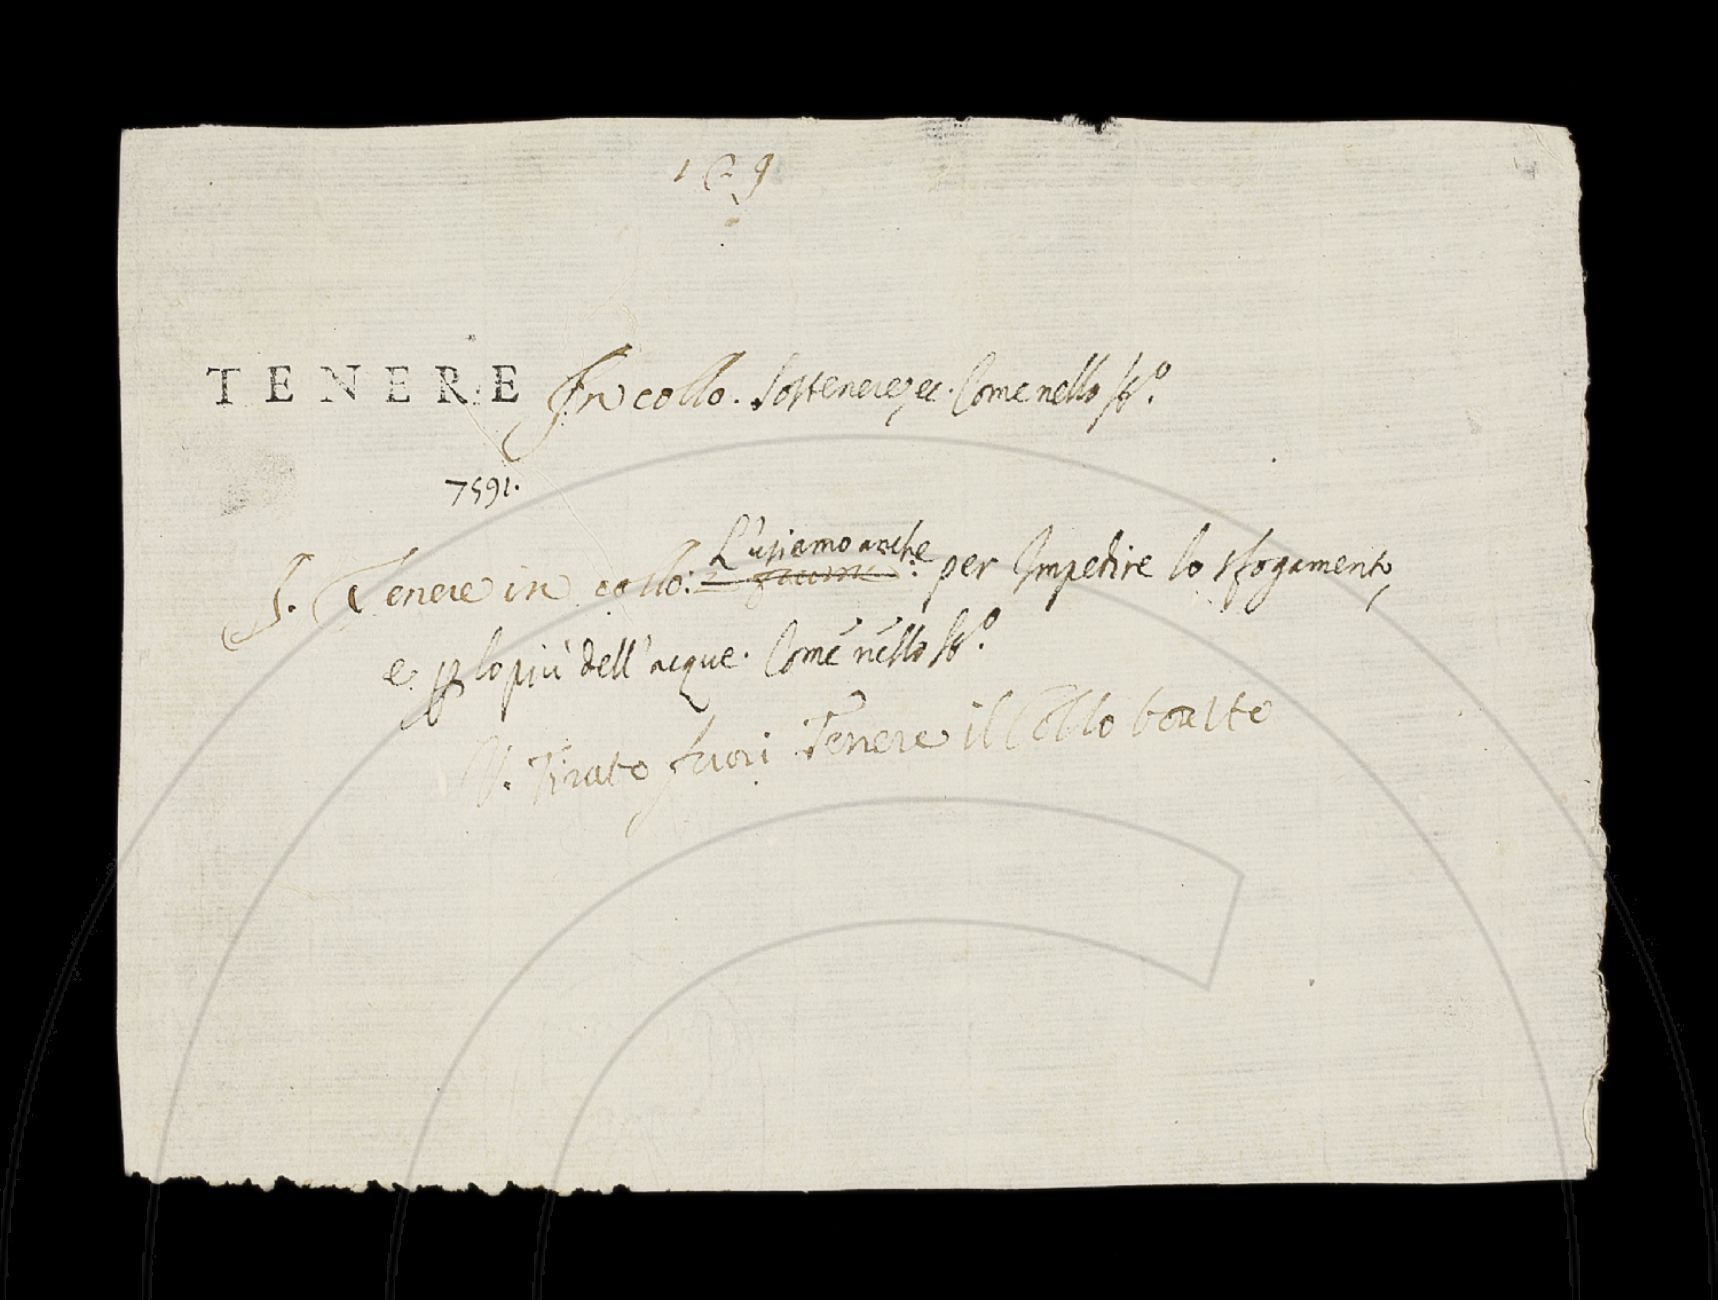 129
TENERE In collo. Sostenere, ec. Come nello
7591.
§. Tenere in collo: L'usiamo anche per Impedire lo sfogamento,
e plopiù dell'acque. Come nello
V. Tirato fuori Tenere il Collo